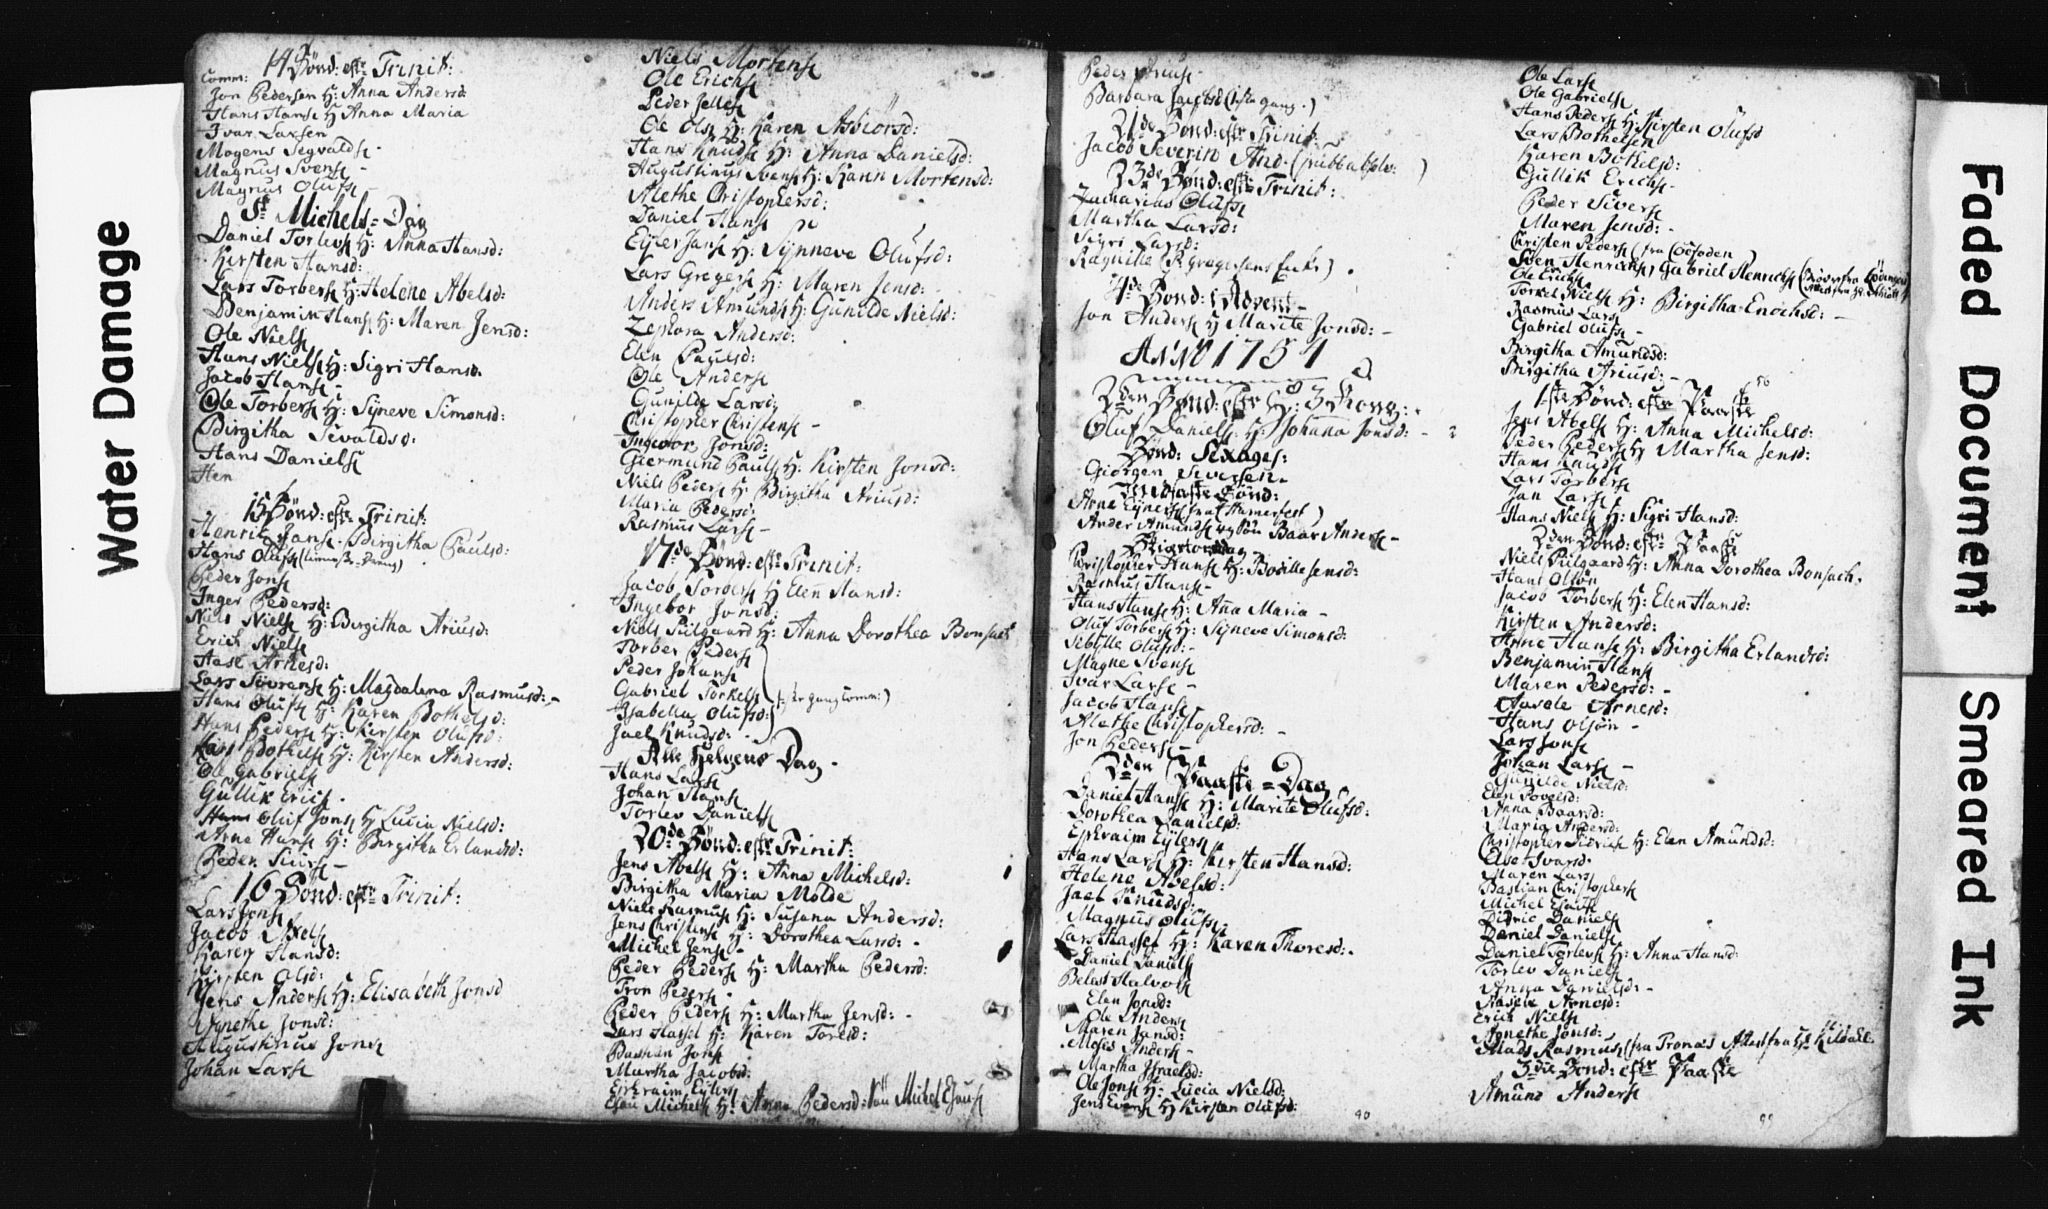 Water Damage
14 Sönd: eftr Trinit:
Comm:
Jon Pedersen H: Anna Andersd:
Hans Hans H Anna Maria
Ivar Larsen
Mogens Segvalds
Magnus Svens
Magnus Olufs
St Michels = Dag
Daniel Torlevs H: Anna Hansd:
Kirsten Hansd:
Lars Torbers H: Helene Abelsd:
Benjamin Hans H: Maren Jensd:
Ole Niels
Hans Niels H: Sigri Hansd.
Jacob Hans
Ole Torbers H: Syneve Simonsd:
Birgitha Sevaldsd:
Hans Daniels
Hen
15 Sönd: eftr Trinit:
Henrik Jans Birgitha Paulsd:
Hans Olufs
Peder Jons
Inger Pedersd:
Niels Niels H: Birgitha Ariusd:
Erich Niels
Aase Arnesd:
Lars Sövrens H: Magdalena Rasmusd:
Hans Olufs H: Karen Bothelsd:
Hans Peders H: Kirsten Olufsd:
Lars Bothels H: Kirsten Andersd:
Ole Gabriels
Gullik Erichs
Oluf Jons H Lucia Nielsd:
Arne Hans H: Birgitha Erlandsd:
Peder Siurs
16 Sönd: eftr Trinit:
Lars Jens
Jacob Axels
Karen Hansd:
Kirsten Olsd:
Jens Anders H: Elisabeth Jonsd
Agnethe Jonsd:
Augustinus Jons
Johan Lars
Niels Mortens
Ole Erichs
Peder Jelles
Ole Ols H: Karen Asbiörsd:
Hans Knuds H: Anna Danielsd:
Augustinus Svens H: Karin Mortensd:
Alethe Christophersd:
Daniel Hans
Eyler Jans H: Synneve Olufsd:
Lars Gregers H: Maren Jensd:
Anders Amunds H: Gunilde Nielsd:
Zephora Andersd:
Elen Paulsd:
Ole Anders
Gunilde Larsd:
Christopher Christens
Ingebor Jonsd:
Giermund Pauls H: Kirsten Jonsd:
Niels Peders H: Birgitha Ariusd:
Maria Pedersd:
Rasmus Lars
17de Sönd: eftr Trinit:
Jacob Torbers H Elen Hansd:
Ingebor Jonsd:
Niels Pulgaard H: Anna Dorothea Bonsach
Torber Peders
Peder Johans
Gabriel Torkels (1ste gang Comm:)
Isabella Olufsd:
Jael Knudsd:
Alle Helgens Dag
Hans Lars
Johan Hans
Torlev Daniels
20de Sönd: eftr Trinit:
Jens Abels H: Anna Michelsd:
Birgitha Maria Molde
Niels Rasmus H: Susana Andersd:
Jens Christens H: Dorothea Larsd:
Michel Jens
Peder Peders H: Martha Pedersd:
Tron Peders
Peder Peders H: Martha Jensd:
Lars Hassel H: Karen Toresd:
Bastian Jons
Martha Jacobsd:
Ephraim Eylers
Esau Michels H: Anna Pedersd: Michel Esaus
Peder
Barbara Jacobsd (1ste gang.)
21de Sönd: eftr Trinit:
Jacob Severin And.
23de Sönd: eftr Trinit:
Zacharias Olufs
Martha Larsd:
Sigri Larsd:
Ragnille
4de Sönd: Advent
Jon Anders H Marite Jonsd:
ANNO 1754
2den Sönd: eftr H: 3 Kong:
Oluf Daniels H: Johana Jonsd:
Sönd: Sexages:
Giörgen Siversen
Sönd:
Arne Eyners (fra Hamerfest)
Ander Amunds og Baar Anders
Skiertorsdag
Christopher Hans H: Bodille Jensd:
Rasmus Hans
Hans Hans H: Anna Maria
Oluf Torbers H: Syneve Simonsd:
Sibylle Olufsd:
Magne Svens
Ivar Lars
Jacob Hans
Alethe Christophersd:
Jon Peders
2den Paaske = Dag
Daniel Hans H: Marite Olufsd:
Dorothea Danielsd:
Ephraim Eylers
Hans Lars H: Kirsten Hansd:
Helene Abelsd:
Jael Knudsd:
Magnus Olufs
Lars Hassel H: Karen Thoresd:
Daniel Daniels
Halvors
Elen Jonsd:
Ole Anders
Maren Jansd:
Moses Anders
Martha Israelsd:
Ole Jons H: Lucia Nielsd:
Jens Evens H Kirsten Olufsd:
90
Ole Lars
Ole Gabriels
Hans Peders H: Kirsten Olufsd
Lars Bothelsen
Karen Bothelsd:
Gullik Erichs
Peder Sivers
Maren Jensd:
Christen Peders (fra
Sven Henrichs, Gabriel Henrichs
Ole Erichs
Torkel Niels H: Birgitha Enochsd:
Rasmus Lars
Gabriel Olufs
Birgitha Amundsd:
Birgitha Ariusd:
1ste Sönd: eftr Paaske
Jens Abels H: Anna Michelsd:
Peder Peders H Martha Jensd:
Hans Knuds
Lars Torbers
Jan Lars
Hans Niels H: Sigri Hansd:
2den Sönd: eftr Paaske
Niels Pulgaard H: Anna Dorothea Bonsach.
Hans Olsön
Jacob Torbers H: Elen Hansd:
Kirsten Andersd:
Arne Hans H: Birgitha Erlandsd:
Benjamin Hans
Maren Pedersd:
Arnesd:
Hans Olsön
Lars Jons
Johan Lars
Gunilde Nielsd:
Elen Povelsd:
Anna Baarsd:
Maria Andersd:
Christopher Didrich H: Elen Amundsd:
Else Ivarsd:
Maren Lars
Bastian Christophers
Michel Esaus
Didric Daniels
Daniel Daniels
Daniel Torlevs H: Anna Hansd:
Torlev Daniels
Anna Danielsd:
Arnesd:
Erich Niels
Agnethe Jonsd:
Mads Rasmus (fra Tronæs Attest fra Hr Kildahl
3die Sönd: eftr Paaske
Amund Anders
99
Faded Document
Smeared Ink